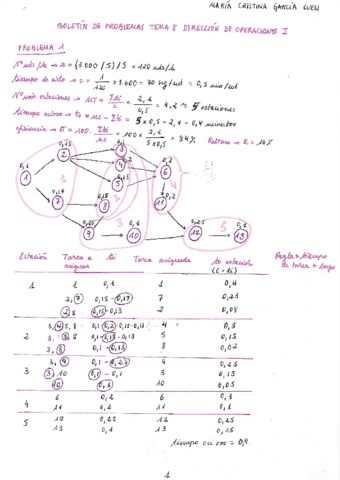 MARÍA CRISTINA GARCÍA
BOLETÍN DE PROBLEMAS TEMA 8 DIRECCIÓN DE OPERACIONES I
PROBLEMA 1
Nº uds/h → r = (3000/5)/5 = 120 uds/h
tiempo de ciclo → c = 1/120 × 3.600 = 30 seg/ud = 0,5 min/ud
Nº mín estaciones → MT = Σti/c = 2,1/0,5 = 4,2 ≈ 5 estaciones
tiempo ocioso → to = mc - Σti = 5×0,5 - 2,1 = 0,4 minutos
eficiencia → E = 100 · Σti/mc = 100 × 2,1/5×0,5 = 84%
Retraso → R = 16%
0,15
0,1
0,2
0,1
2
3
4
0,15
5
0,2
6
1
0,17
7
0,13
8
0,2
11
0,25
9
0,1
10
0,25
12
0,1
13
1
2
3
4
5
Estación Tarea a asignar ti Tarea asignada to estación (c - ti)
Regla = tiempo de tarea + largo
1 1 0,1 1 0,4
2, 7 0,15 - 0,17 7 0,23
2, 8 0,15 - 0,13 2 0,08
2 3, 4, 5, 8 0,1 - 0,2 - 0,15 - 0,13 4 0,3
3, 5, 8 0,1 - 0,15 - 0,13 5 0,15
3, 8 0,1 - 0,13 8 0,02
3 3, 9 0,1 - 0,25 9 0,25
3, 10 0,1 - 0,1 3 0,15
10 0,1 10 0,05
4 6 0,2 6 0,3
11 0,2 11 0,1
5 12 0,25 12 0,25
13 0,1 13 0,15
tiempo ocioso = 0,4
1